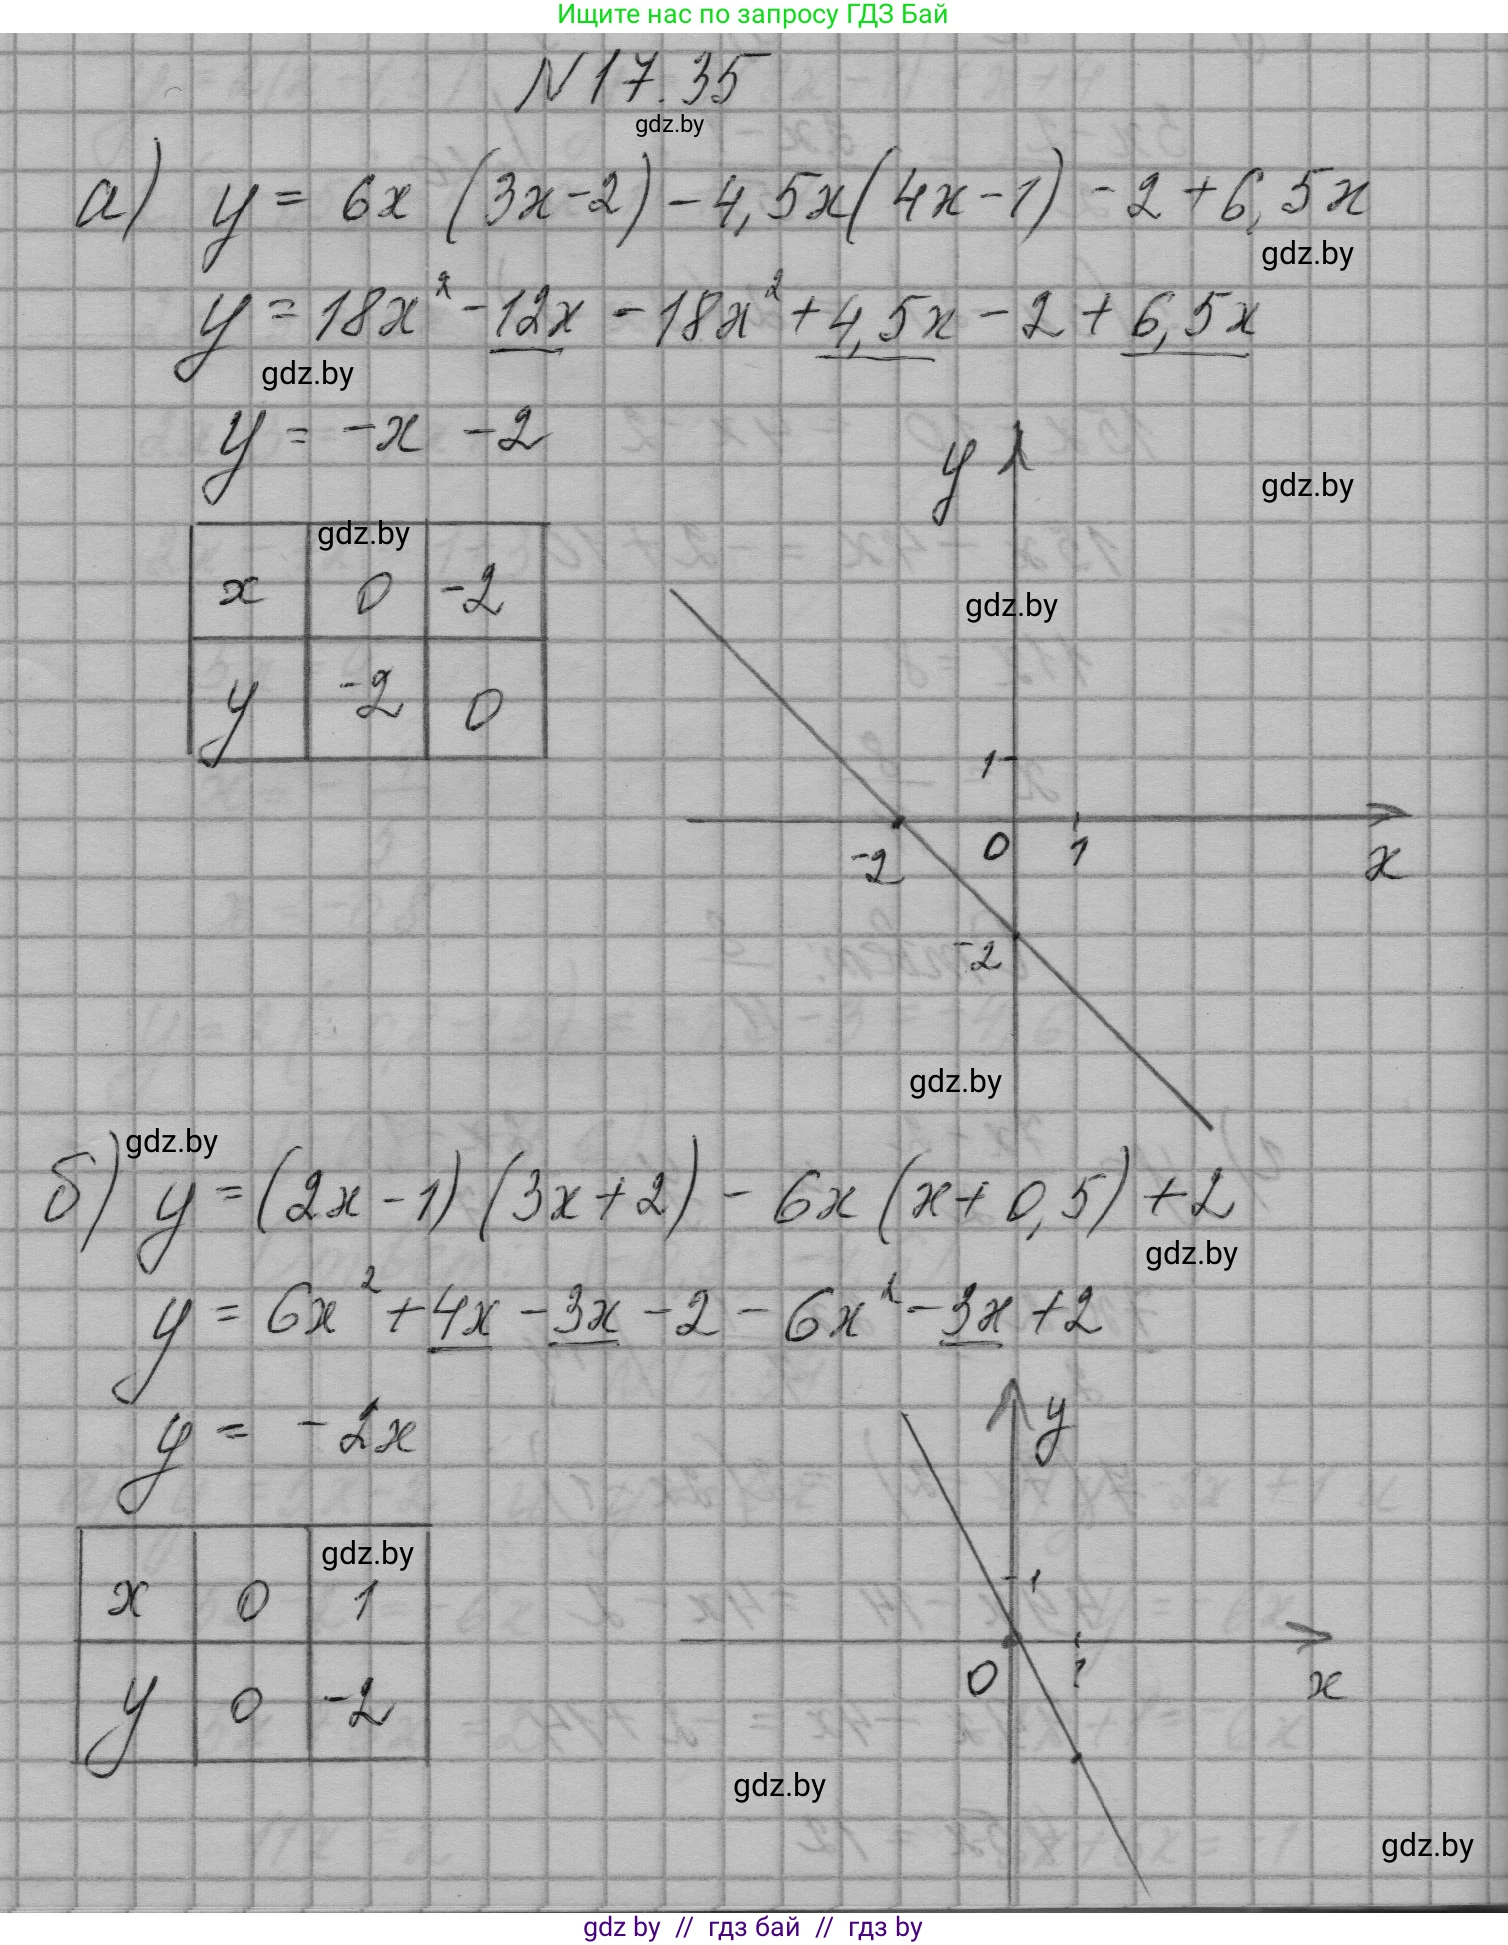 Ищите нас по запросу ГДЗ Бай
N17.35
gdz.by
а) y = 6x (3x-2) - 4,5x(4x-1) - 2 + 6,5x
gdz.by
y = 18x² - 12x - 18x² + 4,5x - 2 + 6,5x
gdz.by
y = -x - 2
y
gdz.by
gdz.by
x 0 -2
gdz.by
y -2 0
1
-2 0 1 x
-2
gdz.by
gdz.by
б) y = (2x-1) (3x+2) - 6x (x+0,5) + 2
gdz.by
y = 6x² + 4x - 3x - 2 - 6x² - 3x + 2
y = -2x
y
gdz.by
x 0 1
1
0 1 x
y 0 -2
gdz.by
gdz.by
gdz by // гдз бай // гдз by